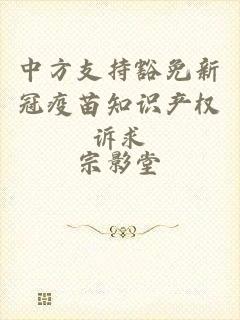 中方支持豁免新
冠疫苗知识产权
诉求
宗影堂